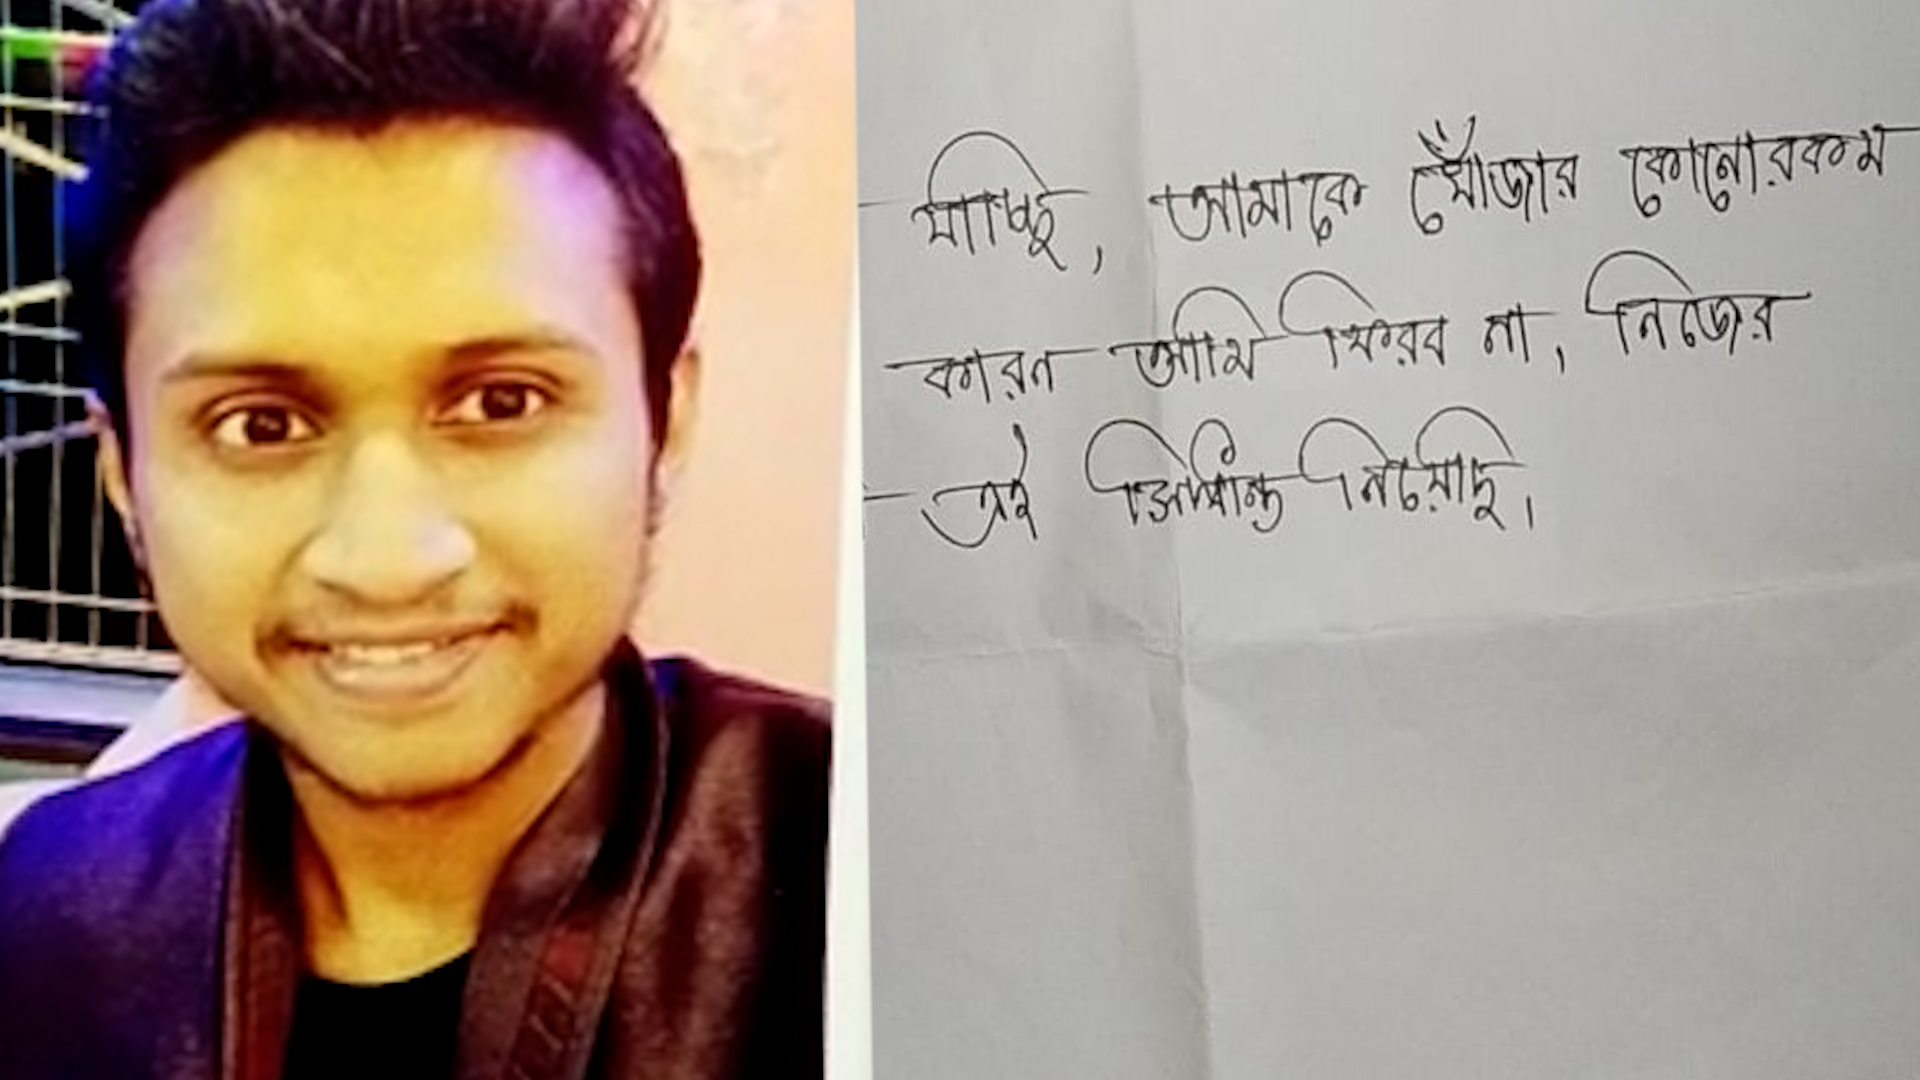 যাচ্ছি, আমাকে খোঁজার কোনোরকম
কারন আমি ফিরব না, নিজের
এই সিদ্ধান্ত নিয়েছি।